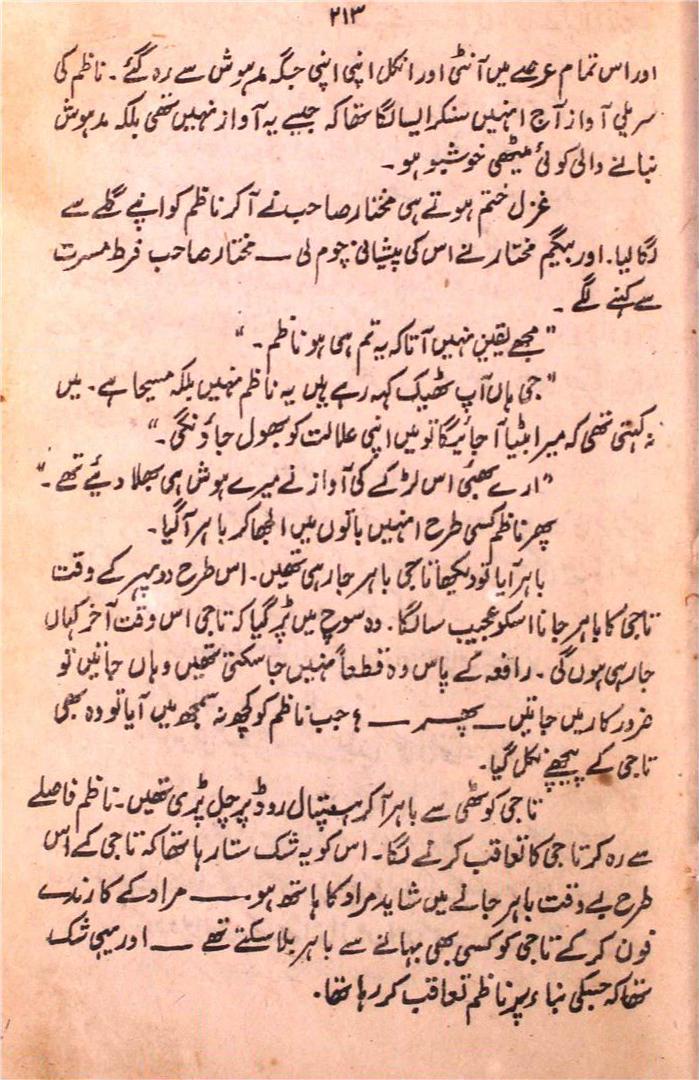 ۲۱۳
اور اس تمام عرصے میں آنٹی اور انکل اپنی اپنی جگہ مدہوش سے رہ گئے۔ ناظم کی
سریلی آواز آج انہیں سنکر ایسا لگا تھا کہ جیسے یہ آواز نہیں تھی بلکہ مدہوش
بنانے والی کوئی میٹھی خوشبو ہو۔
غزل ختم ہوتے ہی مختار صاحب نے آکر ناظم کو اپنے گلے سے
لگا لیا۔ اور بیگم مختار نے اس کی پیشانی چوم لی — مختار صاحب فرط مسرت
سے کہنے لگے۔
"مجھے یقین نہیں آتا کہ یہ تم ہی ہو ناظم۔"
"جی ہاں آپ ٹھیک کہہ رہے ہیں یہ ناظم نہیں بلکہ مسیحا ہے۔ میں
نہ کہتی تھی کہ میرا بیٹا آجائیگا تو میں اپنی علالت کو بھول جاؤنگی۔"
"ارے بھئی اس لڑکے کی آواز نے میرے ہوش ہی بھلا دیئے تھے۔"
پھر ناظم کسی طرح انہیں باتوں میں الجھا کر باہر آگیا۔
باہر آیا تو دیکھا تاجی باہر جارہی تھیں۔ اس طرح دوپہر کے وقت
تاجی کا باہر جانا اسکو عجیب سا لگا۔ وہ سوچ میں پڑ گیا کہ تاجی اس وقت آخر کہاں
جارہی ہوں گی۔ رافعہ کے پاس وہ قطعاً نہیں جاسکتی تھیں وہاں جاتیں تو
ضرور کار میں جاتیں — پھر — ؟ جب ناظم کو کچھ نہ سمجھ میں آیا تو وہ بھی
تاجی کے پیچھے نکل گیا۔
تاجی کوٹھی سے باہر آکر ہسپتال روڈ پر چل پڑی تھیں۔ ناظم فاصلے
سے رہ کر تاجی کا تعاقب کرنے لگا۔ اس کو یہ شک ستا رہا تھا کہ تاجی کے اس
طرح بے وقت باہر جانے میں شاید مراد کا ہاتھ ہو۔ — مراد کے کارندے
فون کر کے تاجی کو کسی بھی بہانے سے باہر بلا سکتے تھے — اور یہی شک
تھا کہ جسکی بناء پر ناظم تعاقب کر رہا تھا۔